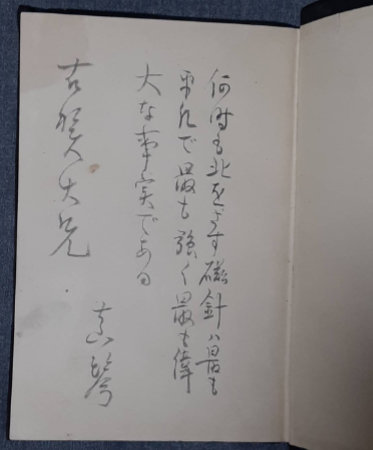 何時も北をさす磁針ハ最も
平凡で最も強く最も偉
大な事実である
古賀大兄